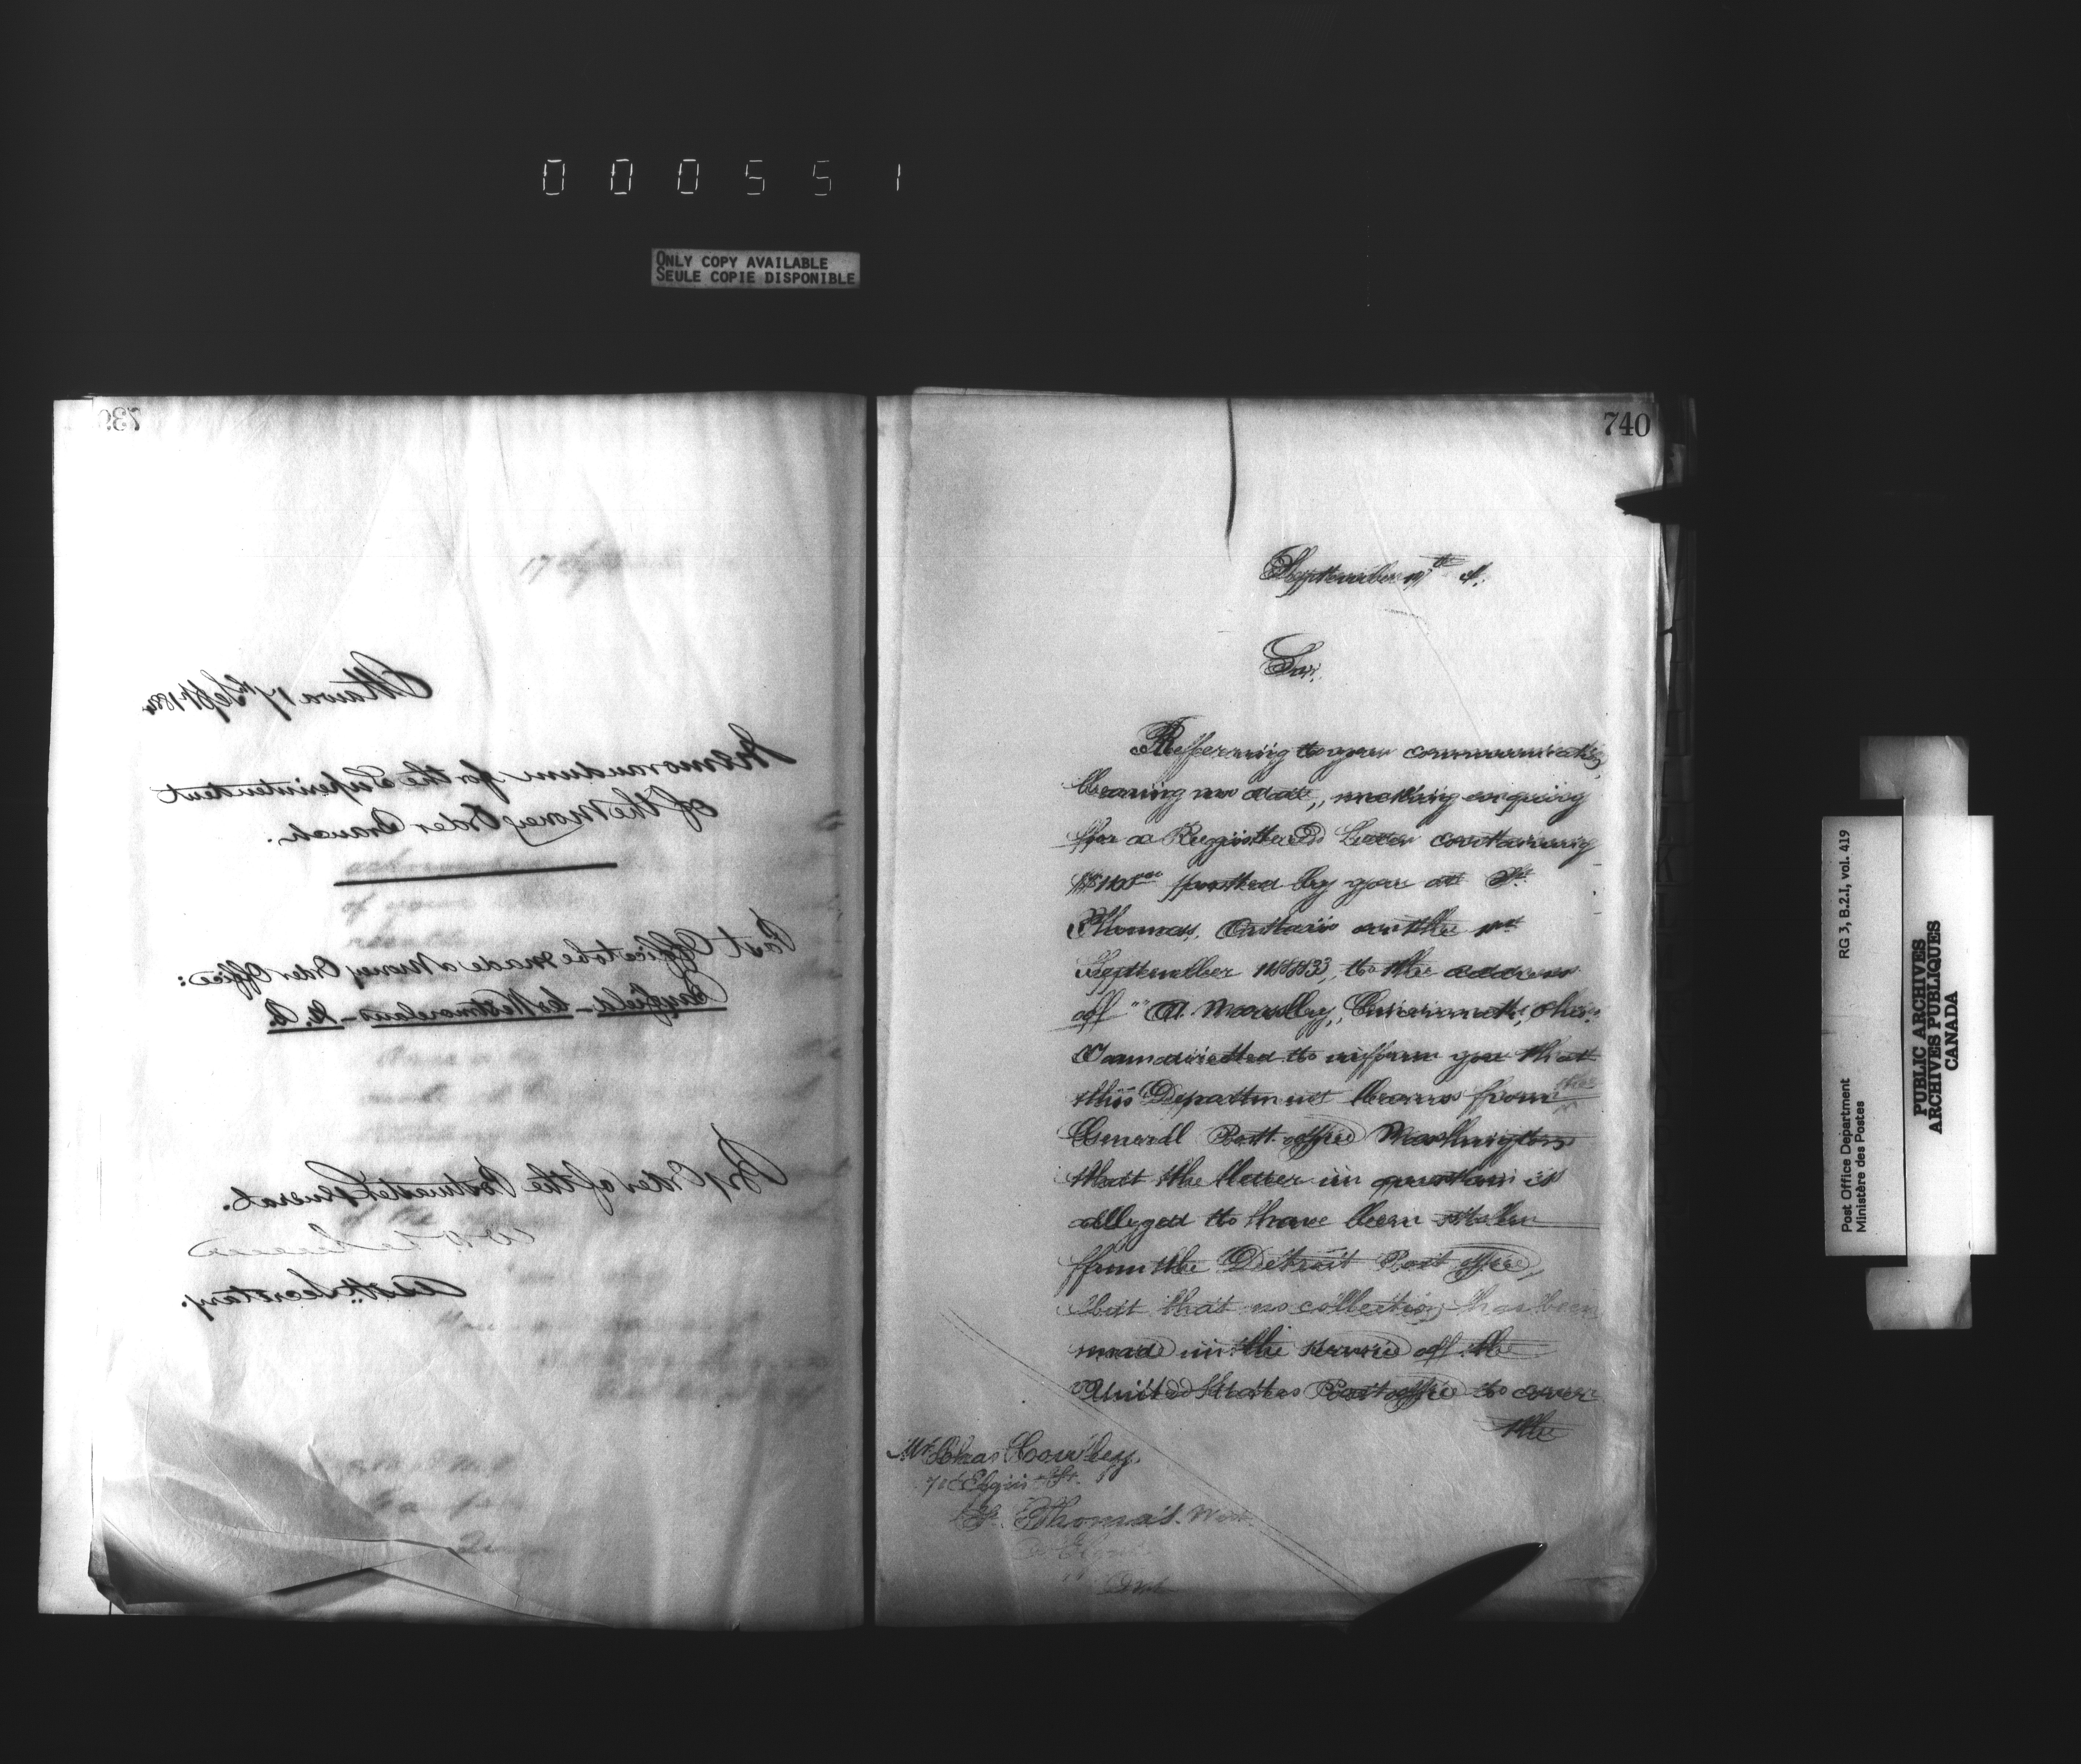 000551
ONLY COPY AVAILABLE
SEULE COPIE DISPONIBLE
739
Ottawa 17th Sept 1884
Memorandum for the Superintendent
of the Money Order Branch.
Post Office to be made a Money Order Office:
Bayfield - Co Westmoreland - N. B.
By Order of the Postmaster General.
Asstt. Secretary.
740
September 17th
Sir,
Referring to your communication
bearing no date, making enquiry
for a Registered Letter containing
posted by you at St.
Thomas, Ontario on the
September 1883, to the address
of " A. Cincinnati, Ohio,
I am directed to inform you that
this Department learns from the
General Post office Washington
that the letter in question is
alleged to have been stolen
from the Detroit Post office,
but that no collection has been
made in the service of the
United States Post office to cover
the
Mr. Chas Cowley,
Elgin St.
St. Thomas. West
Ont
Post Office Department RG 3, B.2.I, vol. 419
Ministère des Postes
PUBLIC ARCHIVES
ARCHIVES PUBLIQUES
CANADA